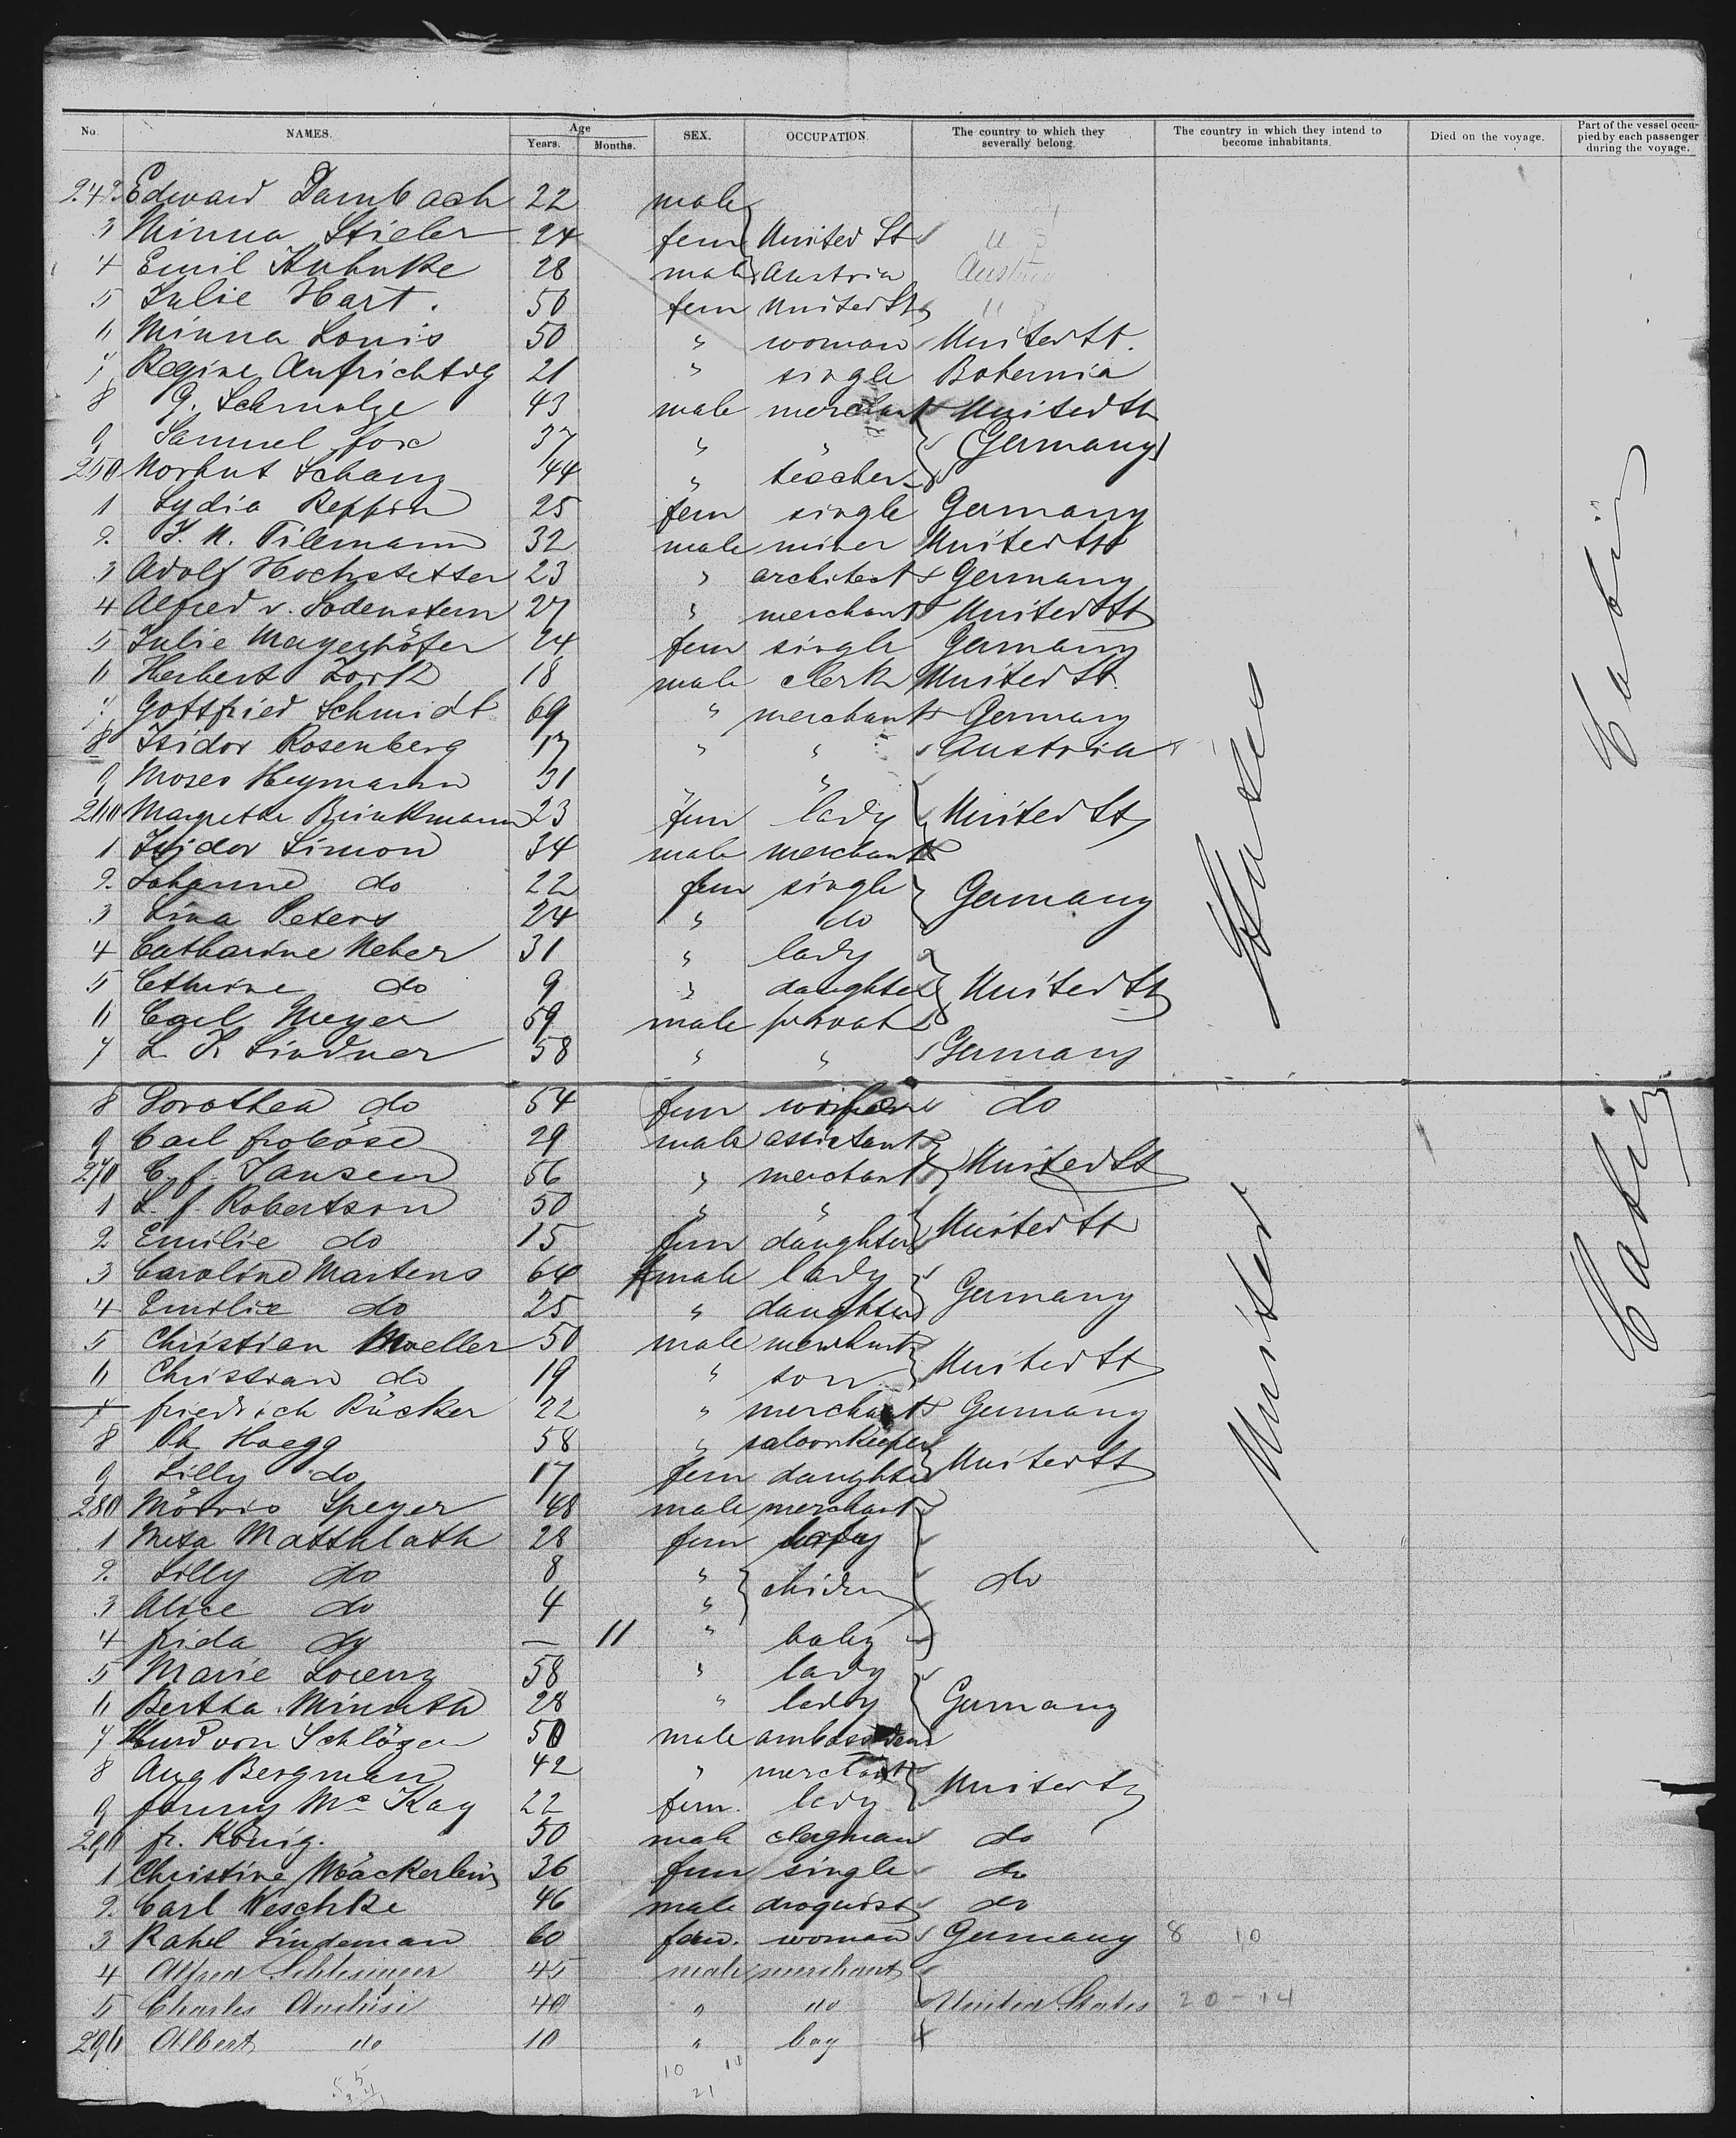 No. NAMES. Age Years. Months. SEX. OCCUPATION. The country to which they severally belong. The country in which they intend to become inhabitants. Died on the voyage. Part of the vessel occupied by each passenger during the voyage.
242. Edward Dambach 22 male
3 Minna Stieler 24 fem United St U S
4 Emil Kuhnke 28 male Austria Austria
5 Julie Hart. 50 fem United St U
6 Minna Louis 50 " woman United St.
7 Regine Aufrichtig 21 " single Bohemia
8 G. Schmalze 43 male merchant United St
9 Samuel fox 37 " " (Germany)
250 Schanz 44 " teacher
1 Lydia Reppin 25 fem single Germany
2. Tillmann 32 male miner United St
3 Adolf Hochstetter 23 " architect Germany
4 Alfred v. Sodenstern 27 " merchant United St
5 Julie Mayerhöfer 24 fem single Germany
6 Herbert Zork 18 male clerk United St.
7 Gottfried Schmidt 69 " merchant Germany
8 Isidor Rosenberg 17 " " Austria
9 Moses Heymann 31 " "
260 Margrethe Brinkmann 23 fem lady United St
1 Isidor Simon 34 male merchant
2. Johanne do 22 fem single Germany
3 Lina Peters 24 " do
4 Catharine Neher 31 " lady
5 do 9 " daughter United St
6 Carl Meyer 59 male privat
7 L. Lindner 58 " " Germany
8 Dorothea do 54 fem do
9 Carl froböse 29 male assistant
270 C. f. Jansen 56 " merchant United St
1 L. f. Robertson 50 " "
2 Emilie do 15 fem daughter United St
3 Caroline Martens 64 fmale lady
4 Emilie do 25 " daughter Germany
5 Christian Moeller 50 male merchant
6 Christian do 19 " son United St
7 friedrich Rücker 22 " merchant Germany
8 Haegg 58 " saloonkeeper
9 Lilly do 17 fem daughter United St
280 Morris Speyer 48 male merchant
1 Meta Matthlath 28 fem lady
2. Lilly do 8 "
3 Alice do 4 " do
4 frida do — 11 " baby
5 Marie Lorenz 58 " lady
6 Bertha Minuth 28 " lady Germany
7 Kurd von Schlözer 50 male
8 Aug Bergman 42 " merchant United St
9 fanny Mc Kay 22 fem. lady
290 fr. König. 50 male clegman do
1 Christine Wäckerlein 36 fem single do
2. Carl Neschke 46 male droguist do
3 Rahel Lindeman 60 fem. woman Germany 8 10
4 Alfred 45 male merchant
5 Charles 40 " do United States 20 - 14
296 Albert do 10 " boy
United States
Cabin
Cabin
10 11
21